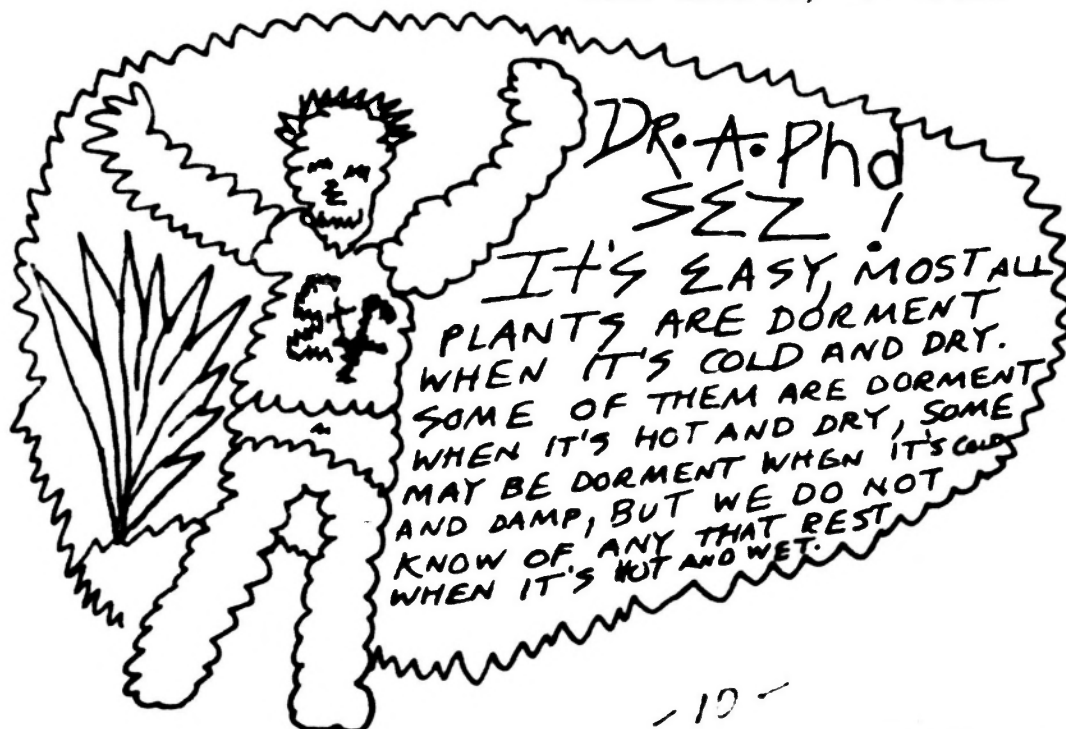 DR. A. Phd
SEZ!
It's EASY, MOST ALL
PLANTS ARE DORMENT
WHEN IT'S COLD AND DRY.
SOME OF THEM ARE DORMENT
WHEN IT'S HOT AND DRY, SOME
MAY BE DORMENT WHEN IT'S COLD
AND DAMP, BUT WE DO NOT
KNOW OF ANY THAT REST
WHEN IT'S HOT AND WET.
-10-